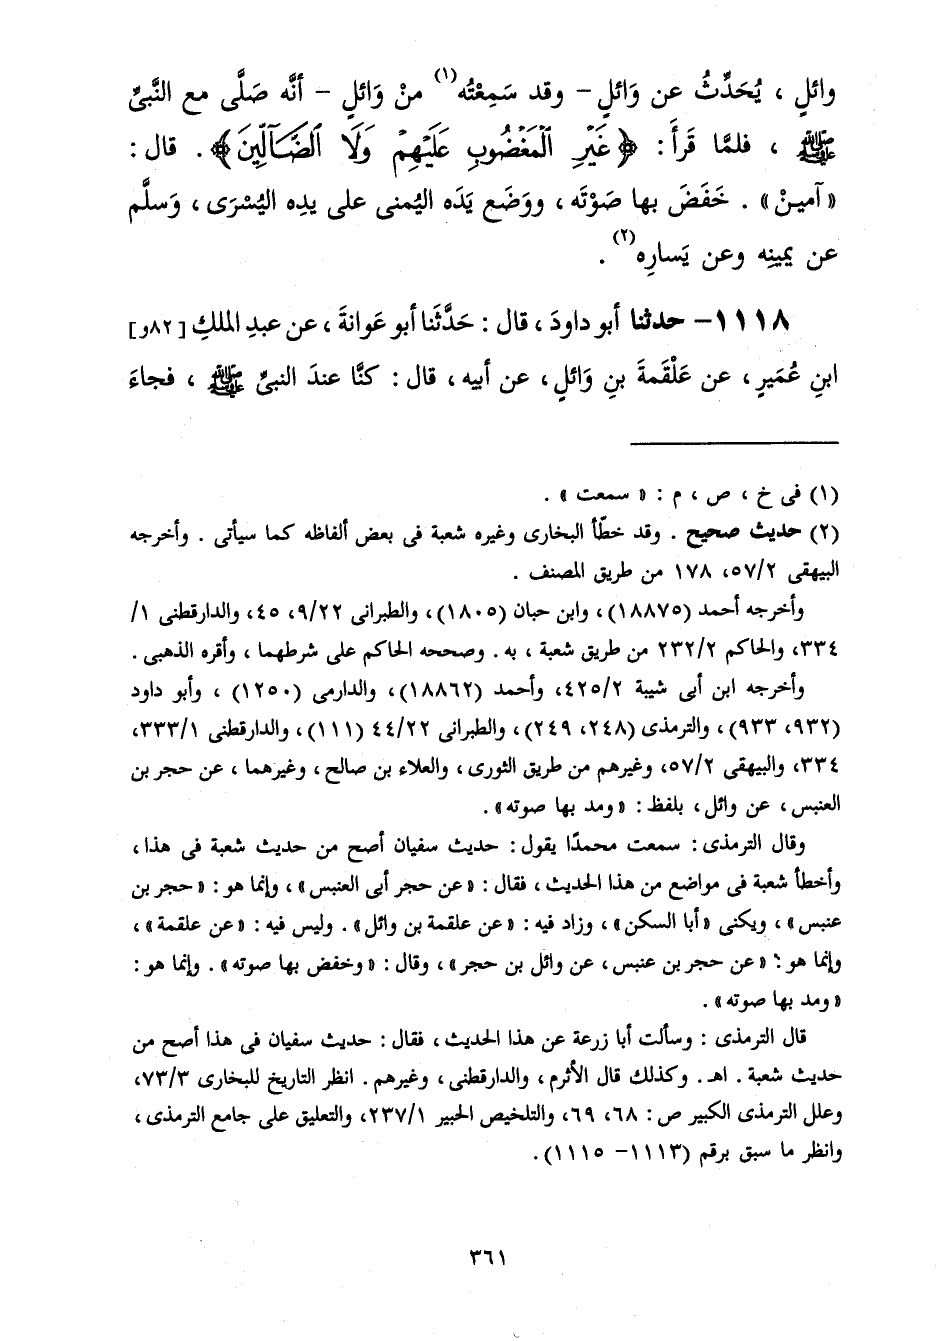 وائلٍ ، يُحَدِّثُ عن وَائلٍ – وقد سَمِعْتُه(١) منْ وَائلٍ – أنَّه صَلَّى مع النَّبىِّ
ﷺ ، فلمَّا قَرأَ : ﴿غَيْرِ الْمَغْضُوبِ عَلَيْهِمْ وَلَا الضَّآلِّينَ﴾ . قال :
«آمينْ» . خَفَضَ بها صَوْتَه ، ووَضَع يَدَه اليُمنى على يدِه اليُسْرَى ، وَسلَّم
عن يمينِه وعن يَسارِه(٢) .
١١١٨– حدثنا أبو داودَ ، قال : حَدَّثَنا أبو عَوانةَ ، عن عبدِ الملكِ [٨٢و]
ابنِ عُمَيرٍ ، عن عَلْقمةَ بنِ وَائلٍ ، عن أبيه ، قال : كنَّا عندَ النبىِّ ﷺ ، فجاءَ
(١) فى خ ، ص ، م : « سمعت » .
(٢) حديث صحيح . وقد خطّأ البخارى وغيره شعبة فى بعض ألفاظه كما سيأتى . وأخرجه
البيهقى ٥٧/٢، ١٧٨ من طريق المصنف .
وأخرجه أحمد (١٨٨٧٥)، وابن حبان (١٨٠٥)، والطبرانى ٩/٢٢، ٤٥، والدارقطنى ١/
٣٣٤، والحاكم ٢٣٢/٢ من طريق شعبة ، به . وصححه الحاكم على شرطهما ، وأقره الذهبى .
وأخرجه ابن أبى شيبة ٤٢٥/٢، وأحمد (١٨٨٦٢)، والدارمى (١٢٥٠) ، وأبو داود
(٩٣٢، ٩٣٣)، والترمذى (٢٤٨، ٢٤٩)، والطبرانى ٤٤/٢٢ (١١١)، والدارقطنى ٣٣٣/١،
٣٣٤، والبيهقى ٥٧/٢، وغيرهم من طريق الثورى ، والعلاء بن صالح ، وغيرهما ، عن حجر بن
العنبس ، عن وائل ، بلفظ : «ومد بها صوته» .
وقال الترمذى : سمعت محمدًا يقول : حديث سفيان أصح من حديث شعبة فى هذا ،
وأخطأ شعبة فى مواضع من هذا الحديث ، فقال : «عن حجر أبى العنبس» ، وإنما هو : «حجر بن
عنبس» ، ويكنى «أبا السكن» ، وزاد فيه : «عن علقمة بن وائل» . وليس فيه : «عن علقمة» ،
وإنما هو : «عن حجر بن عنبس ، عن وائل بن حجر» ، وقال : «وخفض بها صوته» . وإنما هو :
«ومد بها صوته» .
قال الترمذى : وسألت أبا زرعة عن هذا الحديث ، فقال : حديث سفيان فى هذا أصح من
حديث شعبة . اهـ . وكذلك قال الأثرم ، والدارقطنى ، وغيرهم . انظر التاريخ للبخارى ٧٣/٣،
وعلل الترمذى الكبير ص : ٦٨، ٦٩، والتلخيص الحبير ٢٣٧/١، والتعليق على جامع الترمذى ،
وانظر ما سبق برقم (١١١٣– ١١١٥) .
٣٦١